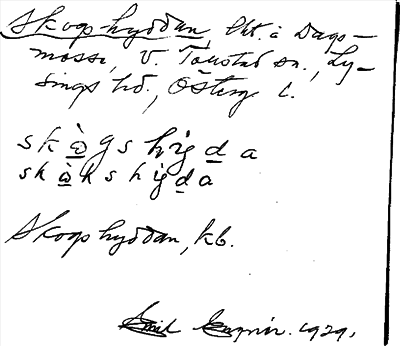 Skogshyddan, lht. å Dags-
mosse, V. Tollstad sn., Ly-
sings hd., Österg. l.
skò̱gshyd̲a
skò̱kshyd̲a
Skogshyddan, kb.
Emil 1929.